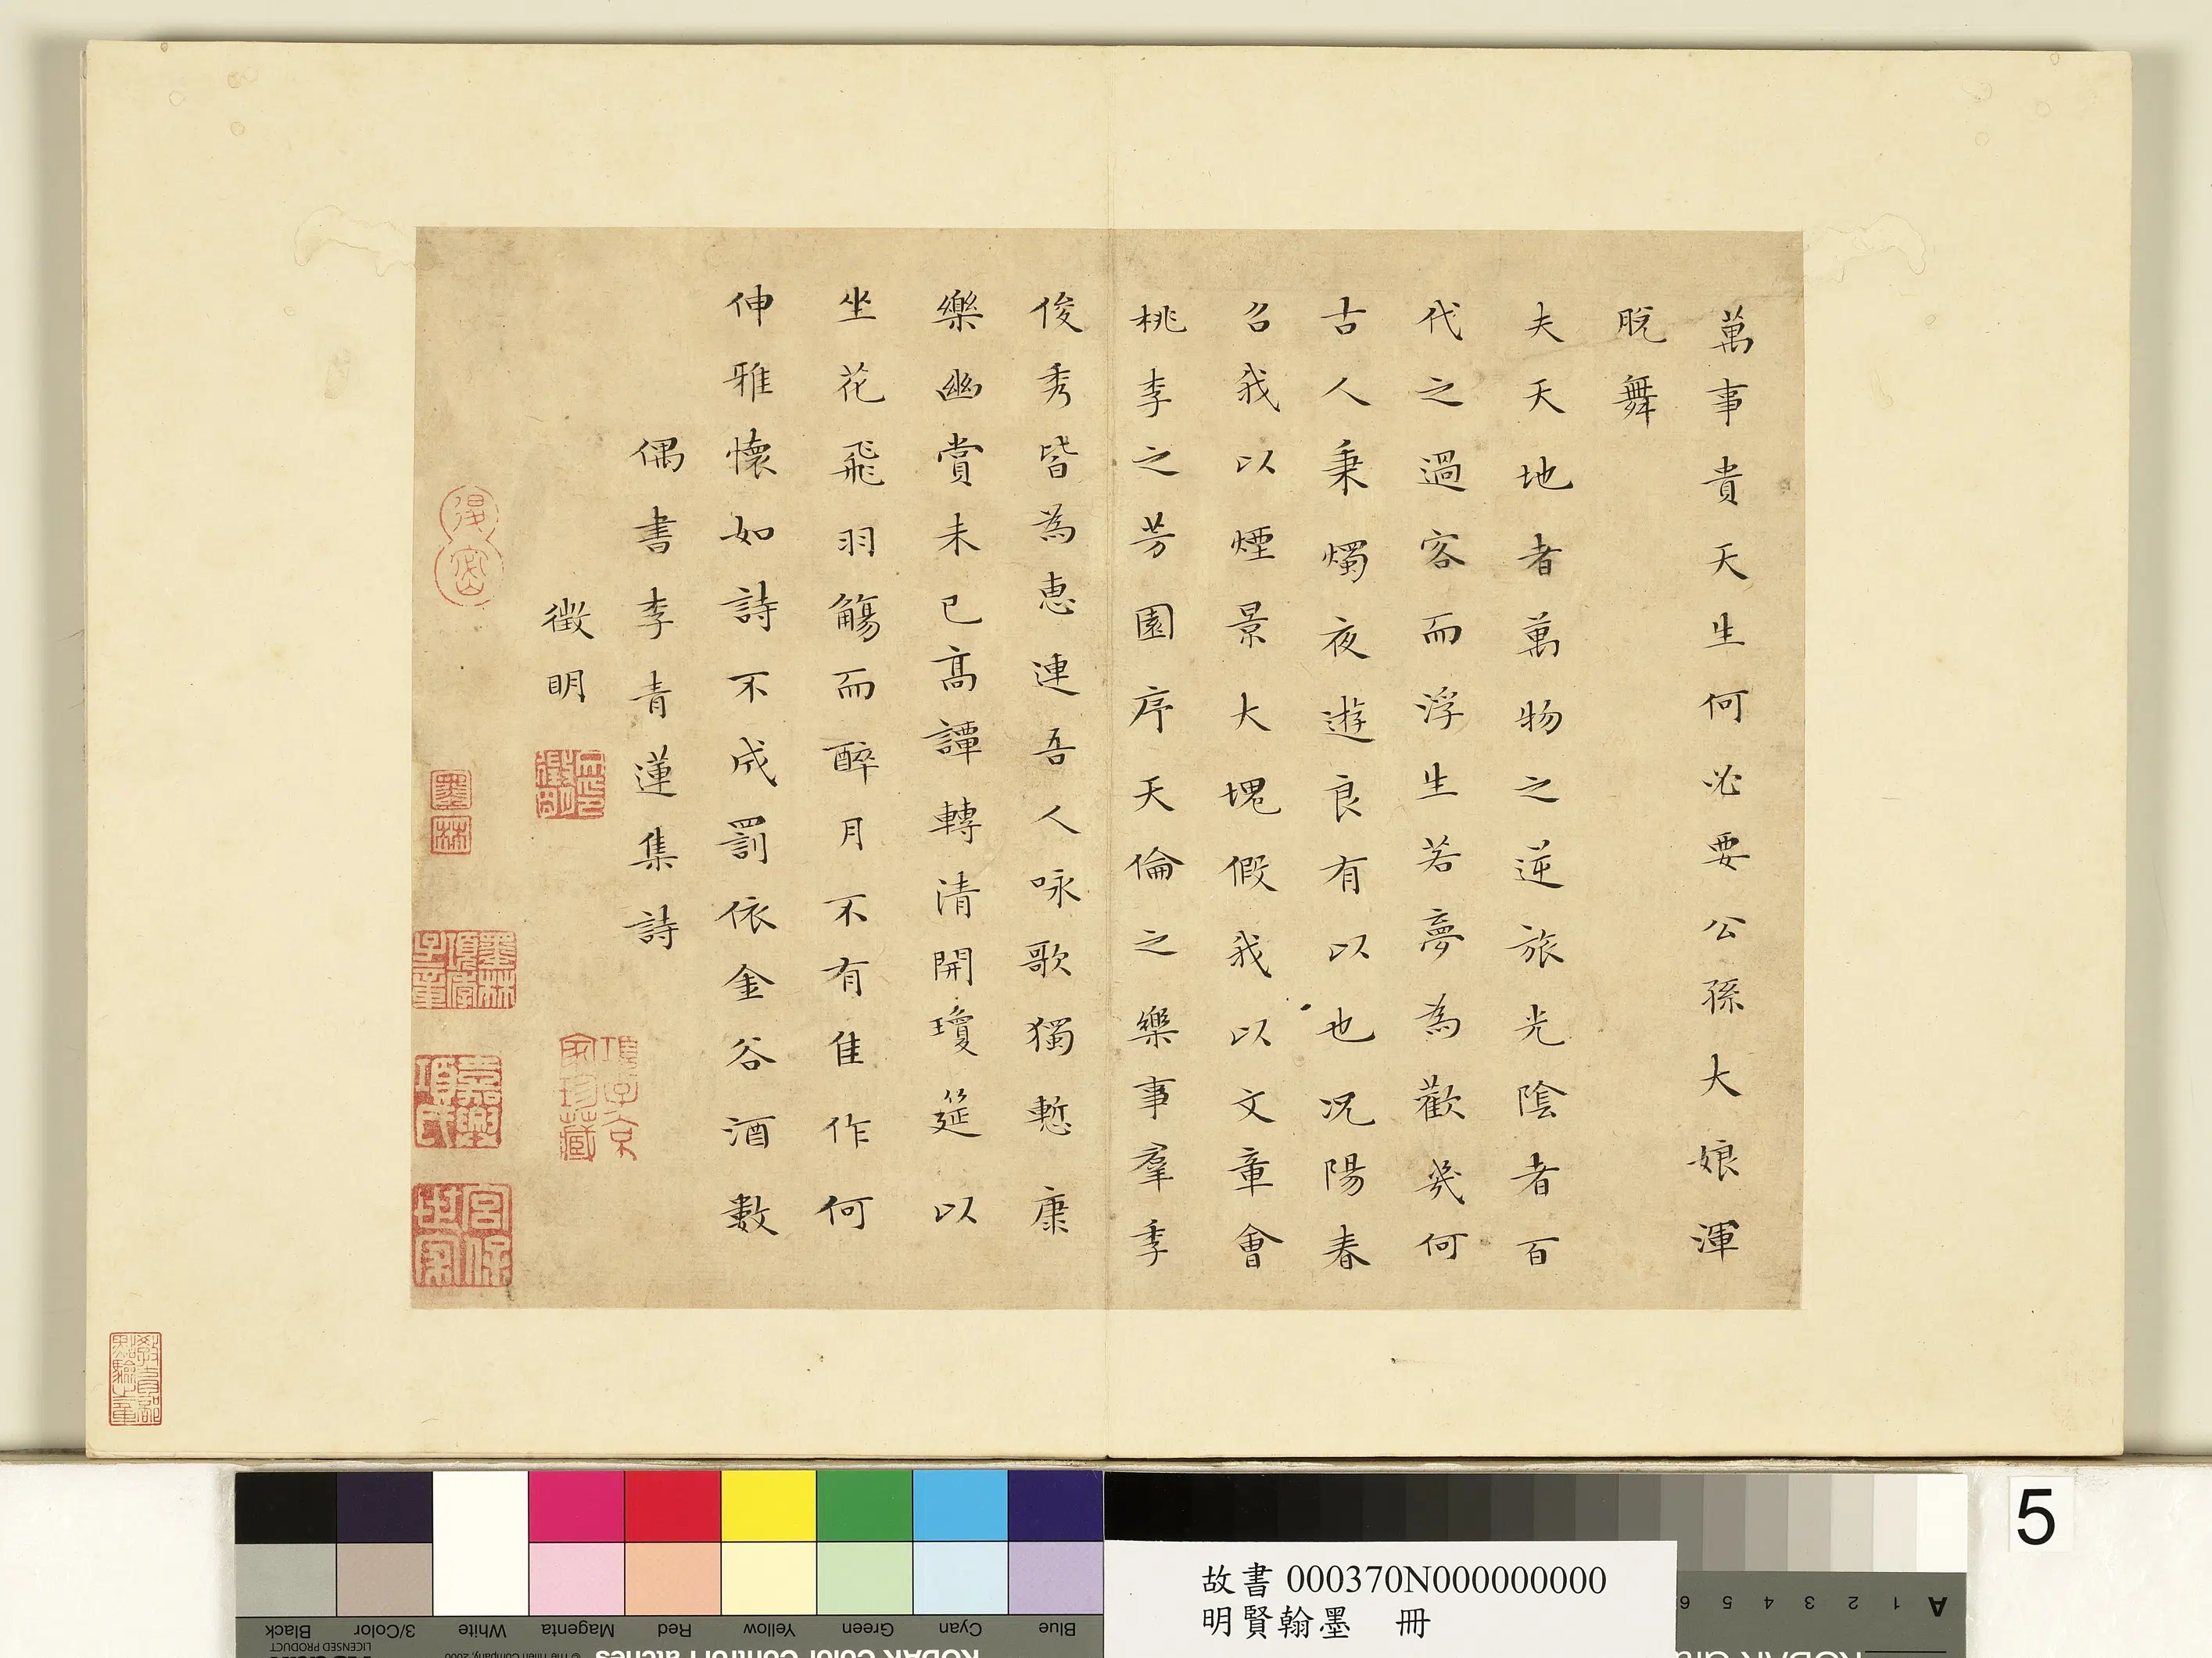 萬事貴天生何必要公孫大娘渾
脫舞
夫天地者萬物之逆旅光陰者百
代之過客而浮生若夢為歡幾何
古人秉燭夜遊良有以也況陽春
召我以煙景大塊假我以文章會
桃李之芳園序天倫之樂事羣季
俊秀皆為惠連吾人咏歌獨慙康
樂幽賞未已高譚轉清開瓊筵以
坐花飛羽觴而醉月不有隹作何
伸雅懷如詩不成罰依金谷酒數
偶書李青蓮集詩
徵明
墨林
項子京家珍藏
宮保世家
教育部點驗之章
Black
3/Color
White
Magenta
Red
Yellow
Green
Cyan
Blue
LICENSED PRODUCT
© The Tiffen Company, 2000
KODAK Color Control Patches
故書 000370N000000000
明賢翰墨 冊
A 1 2 3 4 5 6
5